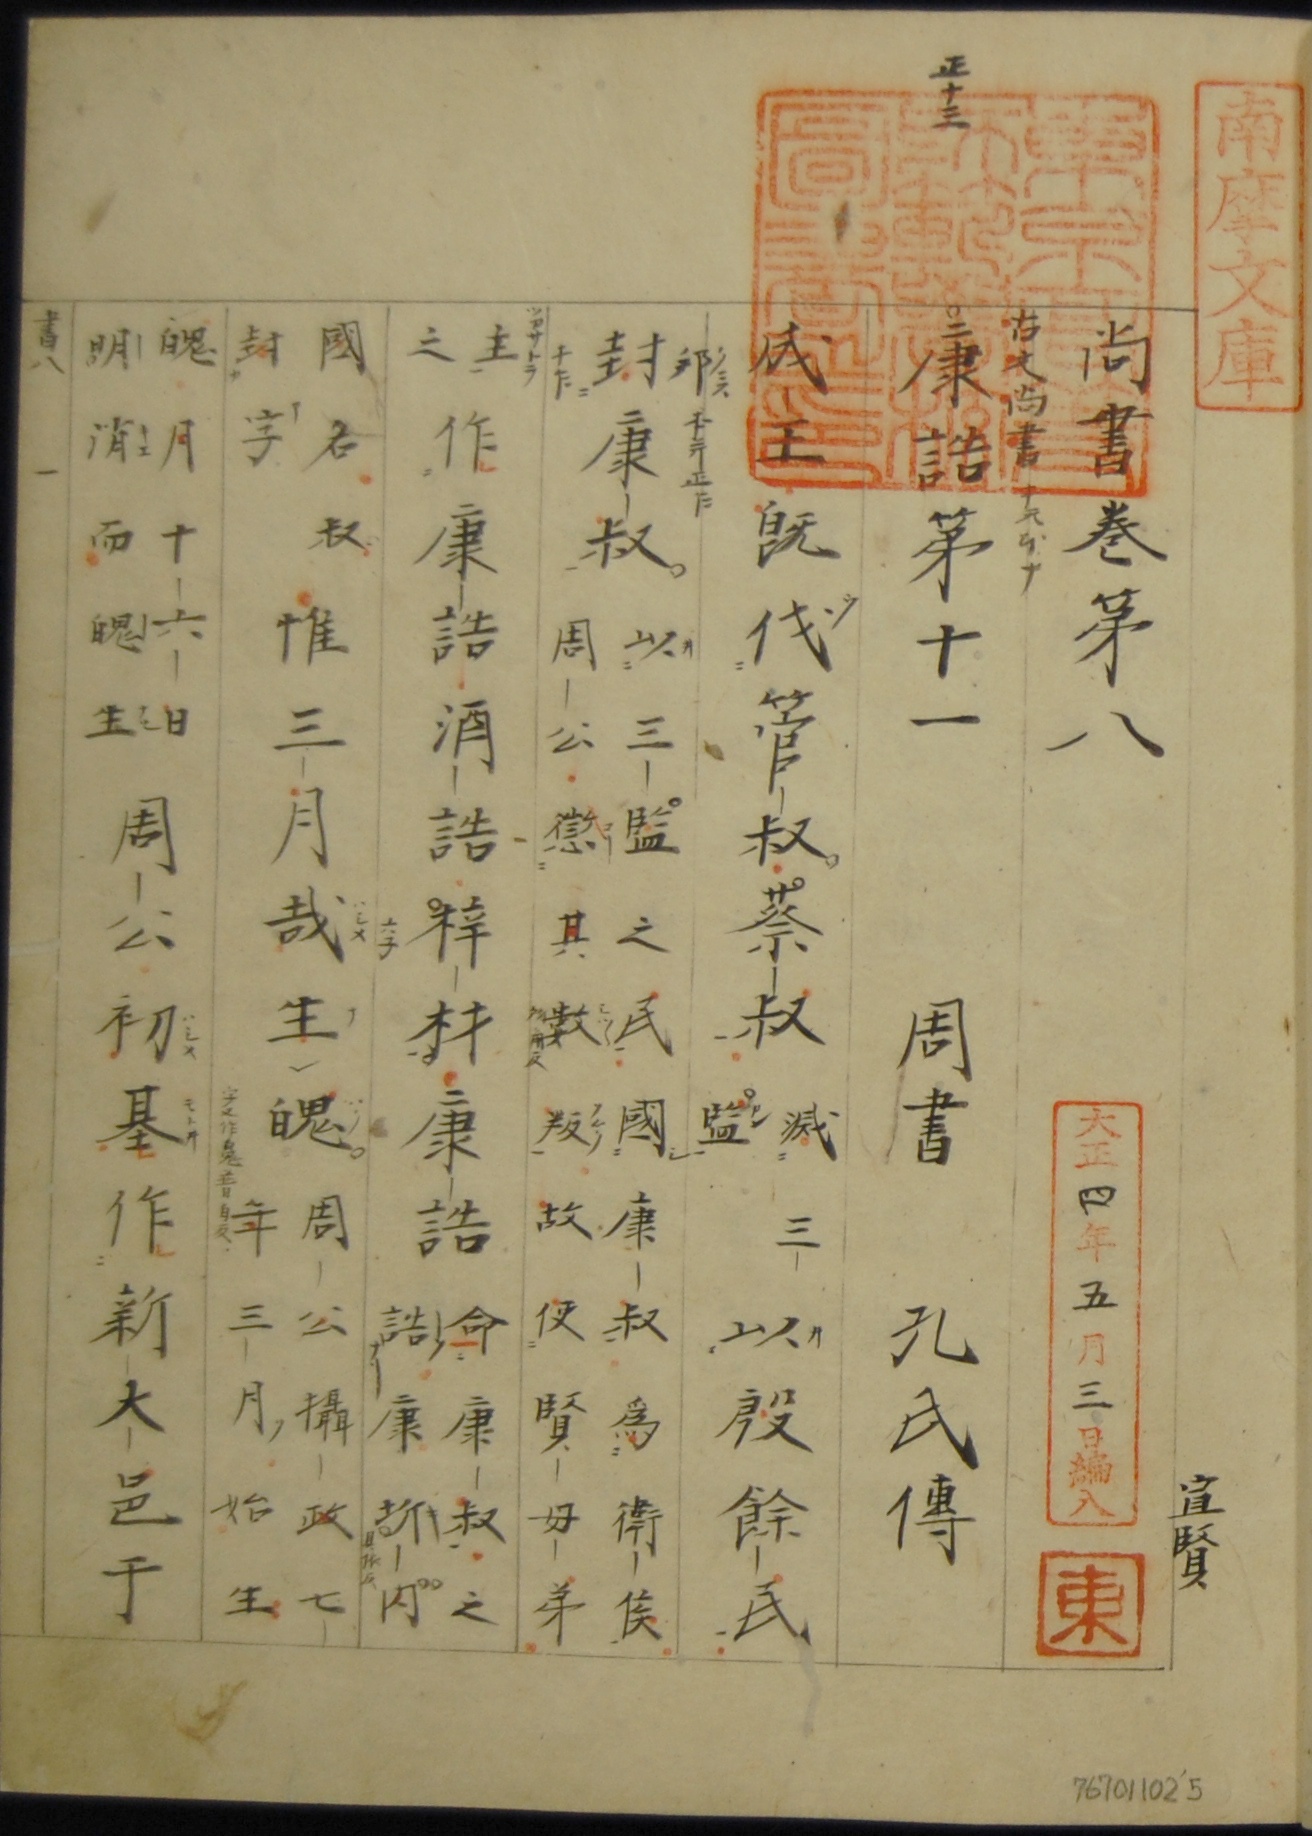 南摩文庫
尚書卷第八
大正四年五月三日編入
東
宣賢
古文尚書
正十三
康誥第十一 周書 孔氏傳
成王既伐管叔蔡叔滅三監以殷餘民
邦
封康叔以三監之民國康叔爲衛侯周公懲其數叛故使賢母弟
主之作康誥酒誥梓材康誥命康叔之誥康圻内
國名叔封字惟三月哉生魄周公攝政七年三月始生
魄月十六日明消而魄生周公初基作新大邑于
書八 一
76701102'5